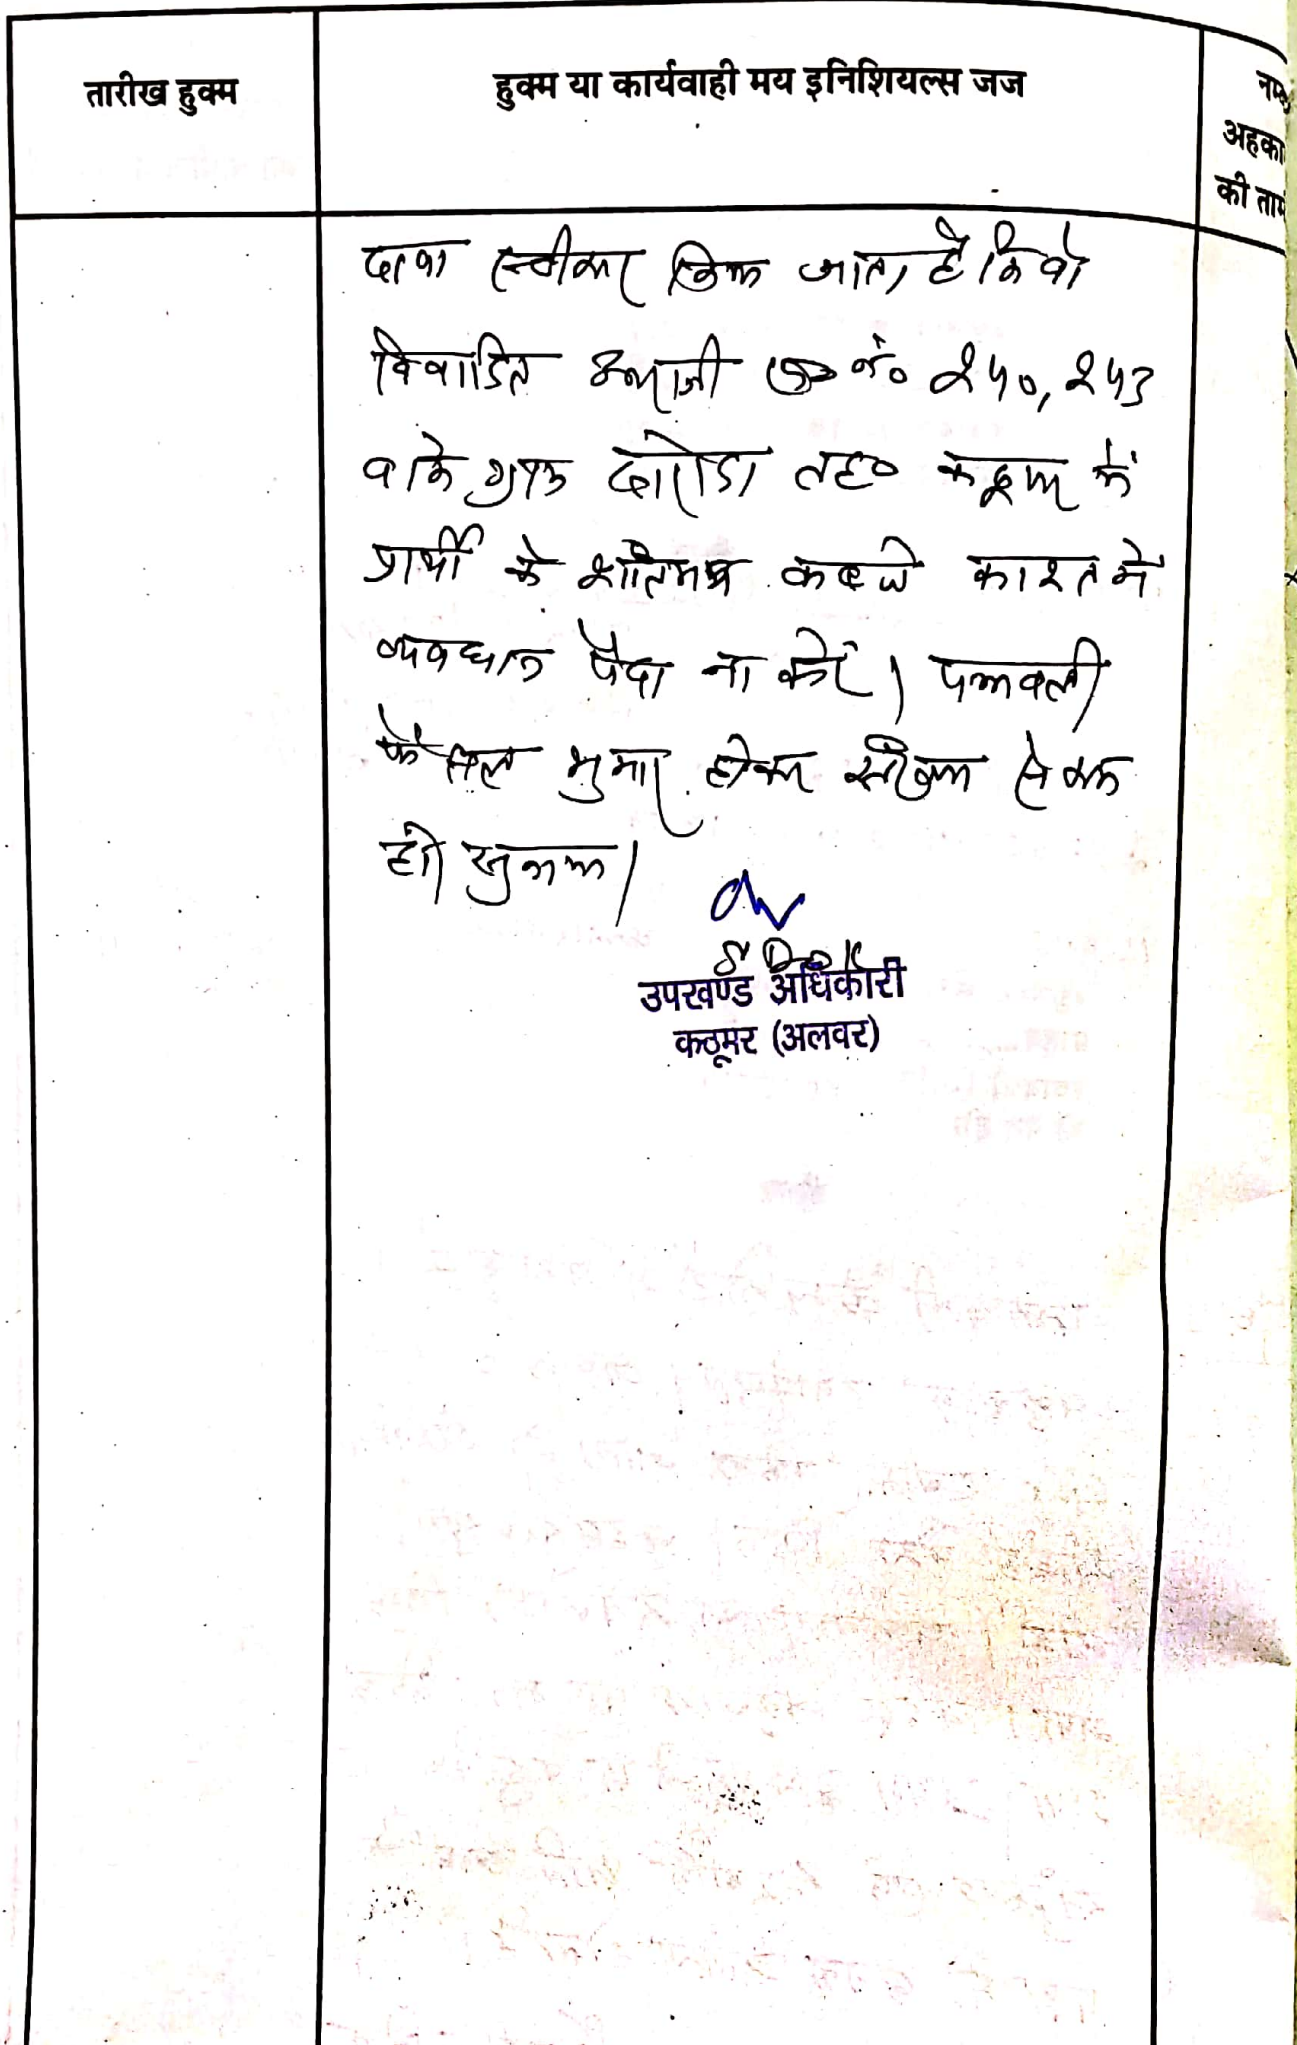 तारीख हुक्म
हुक्म या कार्यवाही मय इनिशियल्स जज
अहका
की ताम
दावा स्वीकार किया जाता है कि वो
विवादित आराजी ख० नं० 250, 253
वाके ग्राम दारोडा तह० कठूमर के
प्रार्थी के शांतिमय कब्जे काश्त में
व्यवधान पैदा ना करें। पत्रावली
फैसल शुमार होकर
हो।
S D O K
उपखण्ड अधिकारी
कठूमर (अलवर)